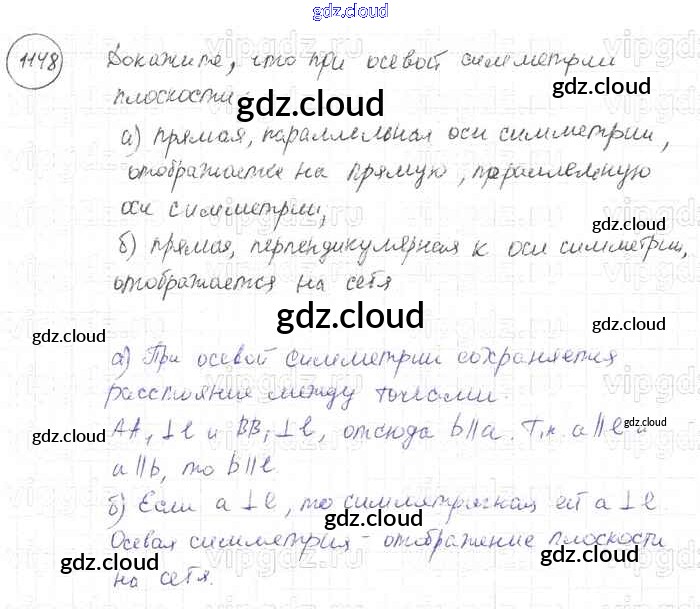 gdz.cloud
1148 Докажите, что при осевой симметрии
плоскости:
gdz.cloud
gdz.cloud
а) прямая, параллельная оси симметрии,
отображается на прямую, параллельную
оси симметрии,
gdz.cloud
б) прямая, перпендикулярная к оси симметрии,
отображается на себя
gdz.cloud
gdz.cloud
gdz.cloud
а) При осевой симметрии сохраняется
расстояние между точками.
gdz.cloud
AA₁⊥l и BB₁⊥l, отсюда b||a. Т.к. a||l и
gdz.cloud
a||b, то b||l.
б) Если a⊥l, то симметричная ей a⊥l.
gdz.cloud
Осевая симметрия - отображение плоскости
gdz.cloud
на себя.
gdz.cloud